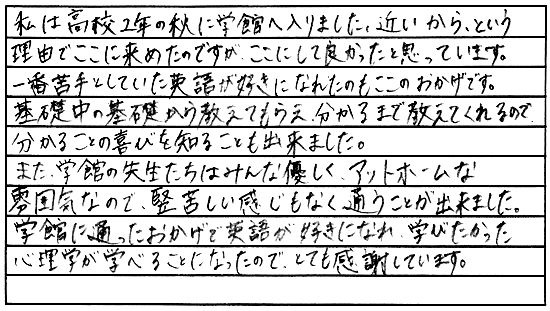 私は高校2年の秋に学館へ入りました。近いから、という
理由でここに来めたのですが、ここにして良かったと思っています。
一番苦手としていた英語が好きになれたのもここのおかげです。
基礎中の基礎から教えてもらえ、分かるまで教えてくれるので、
分かることの喜びを知ることも出来ました。
また、学館の先生たちはみんな優しく、アットホームな
雰囲気なので、堅苦しい感じもなく通うことが出来ました。
学館に通ったおかげで英語が好きになれ、学びたかった
心理学が学べることになったので、とても感謝しています。